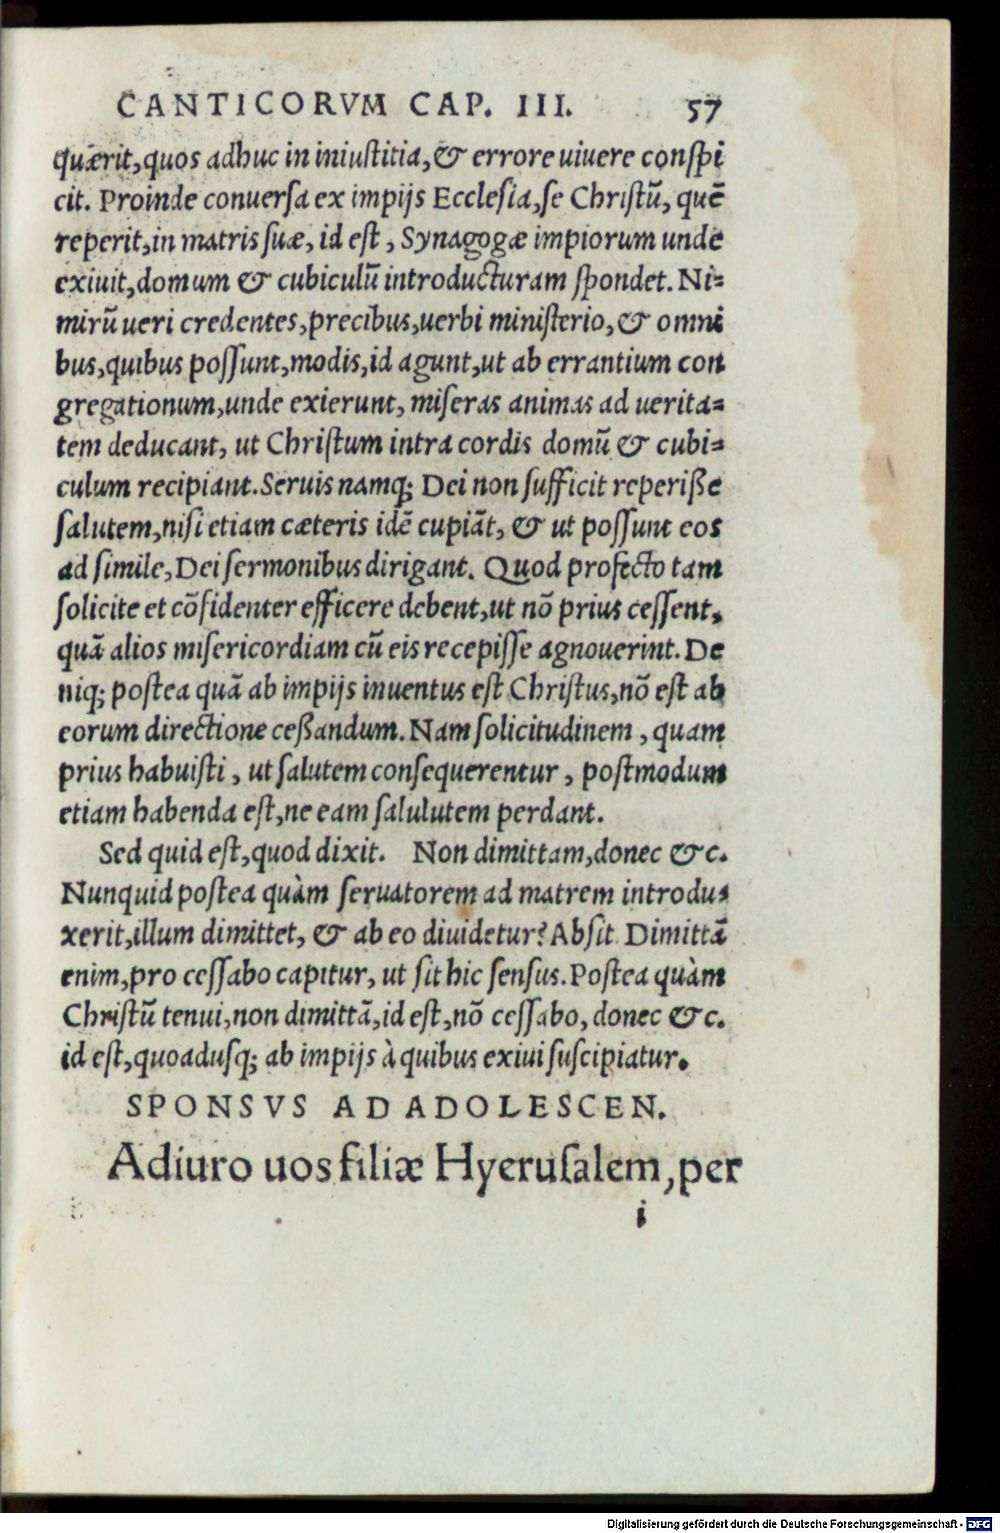 CANTICORVM CAP. III. 57
quærit,quos adhuc in iniuſtitia,& errore uiuere conſpi
cit. Proinde conuerſa ex impijs Eccleſia,ſe Chriſtū, quē
reperit,in matris ſuæ, id eſt, Synagogæ impiorum unde
exiuit,domum & cubiculū introducturam ſpondet. Ni=
mirū ueri credentes,precibus,uerbi miniſterio,& omni
bus,quibus poſſunt,modis,id agunt,ut ab errantium con
gregationum,unde exierunt, miſeras animas ad uerita=
tem deducant, ut Chriſtum intra cordis domū & cubi=
culum recipiant.Seruis namq; Dei non ſufficit reperiße
ſalutem,niſi etiam cæteris idē cupiāt, & ut poſſunt eos
ad ſimile,Dei ſermonibus dirigant. Quod profecto tam
ſolicite et cōfidenter efficere debent,ut nō prius ceſſent,
quā alios miſericordiam cū eis recepiſſe agnouerint. De
niq; poſtea quā ab impijs inuentus eſt Chriſtus,nō eſt ab
eorum directione ceßandum. Nam ſolicitudinem, quam
prius habuiſti, ut ſalutem conſequerentur, poſtmodum
etiam habenda eſt,ne eam ſalulutem perdant.
Sed quid eſt,quod dixit. Non dimittam,donec &c.
Nunquid poſtea quàm ſeruatorem ad matrem introdu=
xerit,illum dimittet, & ab eo diuidetur? Abſit. Dimittā
enim,pro ceſſabo capitur, ut ſit hic ſenſus. Poſtea quàm
Chriſtū tenui,non dimittā,id eſt,nō ceſſabo, donec &c.
id eſt,quoaduſq; ab impijs à quibus exiui ſuſcipiatur.
SPONSVS AD ADOLESCEN.
Adiuro uos filiæ Hyeruſalem,per
i
Digitalisierung gefördert durch die Deutsche Forschungsgemeinschaft - DFG